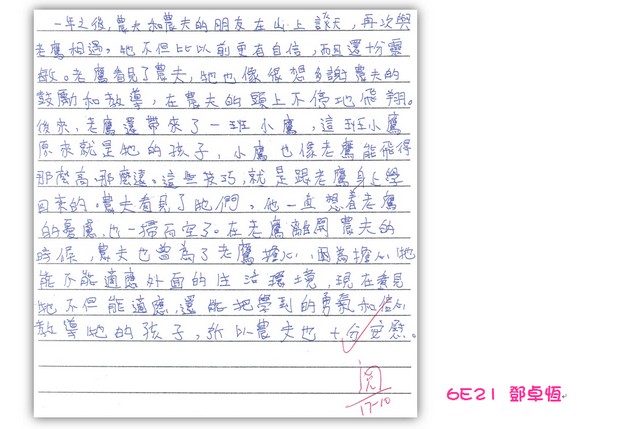 一年之後,農夫和農夫的朋友在山上談天,再次與
老鷹相遇。牠不但比以前更有自信,而且還十分靈
敏。老鷹看見了農夫,牠也像很想多謝農夫的
鼓勵和教導,在農夫的頭上不停地飛翔。
後來,老鷹還帶來了一班小鷹,這班小鷹
原來就是牠的孩子,小鷹也像老鷹能飛得
那麼高、那麼遠。這些技巧,就是跟老鷹身上學
回來的。農夫看見了牠們,他一直想着老鷹
的憂慮,也一掃而空了。在老鷹離開農夫的
時候,農夫也曾為了老鷹擔心,因為擔心牠
能不能適應外面的生活環境,現在看見
牠不但能適應,還能把學到的勇氣和信心
教導牠的孩子,所以農夫也十分安慰。
閱
17-10
6E21 鄧卓恆